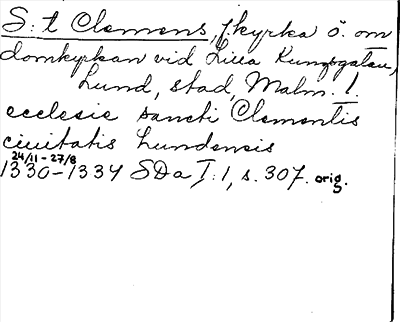 S:t Clemens, f. kyrka ö. om
domkyrkan vid Lilla Kungsgatan,
Lund, stad, Malm. l.
ecclesie sancti Clementis
ciuitatis Lundensis
24/11-27/8
1330-1334 SDa I:1, s. 307. orig.